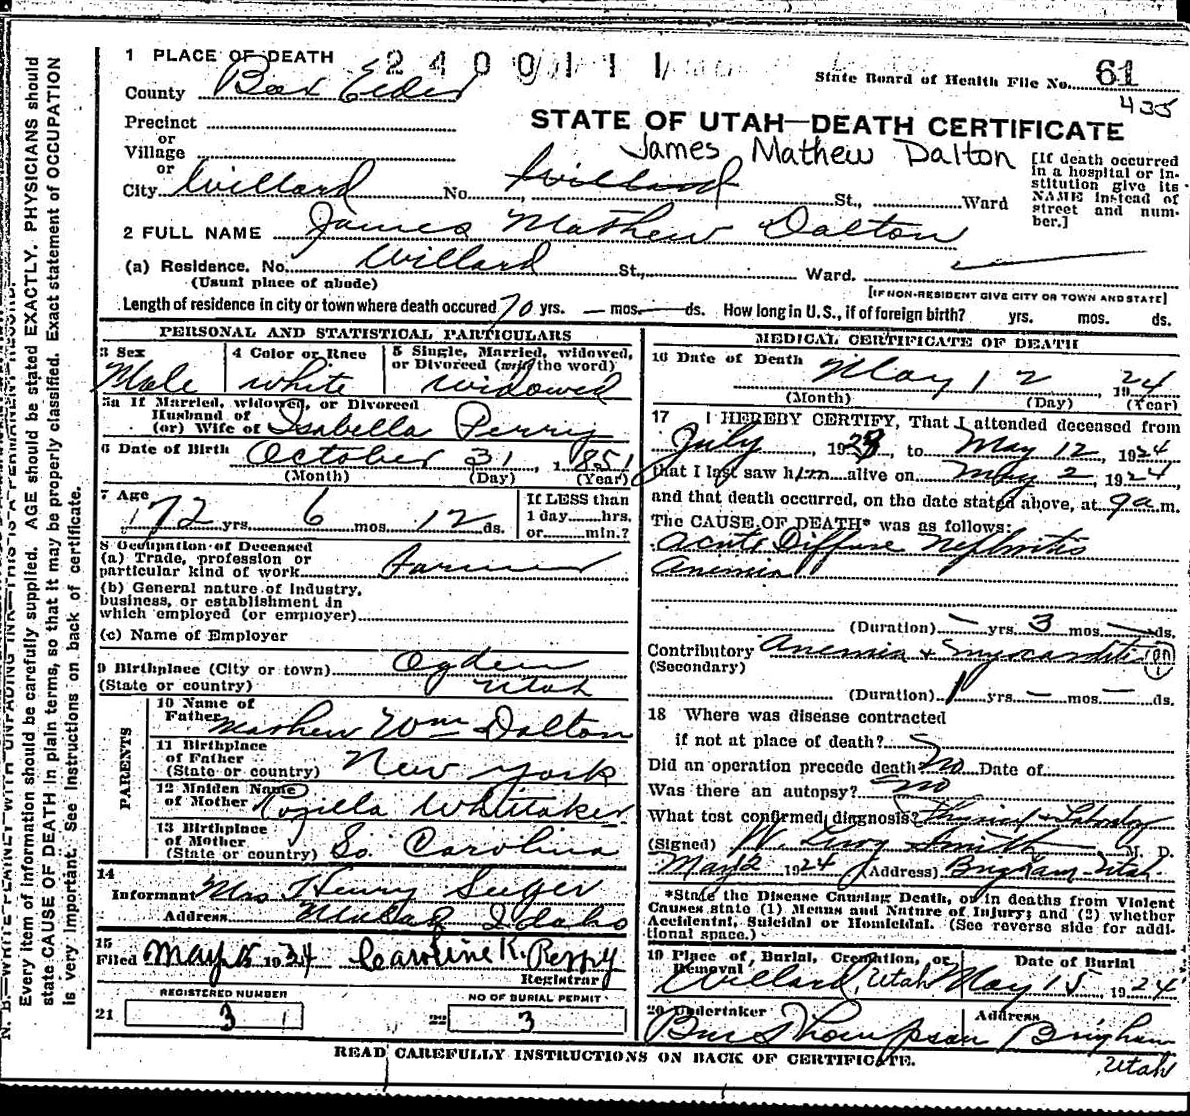 1 PLACE OF DEATH 2400111
State Board of Health File No. 61
County Box Elder
435
Precinct
STATE OF UTAH—DEATH CERTIFICATE
or
Village
James Mathew Dalton
or
City Willard No. Willard St., Ward
[If death occurred
in a hospital or in-
stitution give its
NAME instead of
street and num-
ber.]
2 FULL NAME James Mathew Dalton
(a) Residence. No. Willard St., Ward.
(Usual place of abode)
[IF NON-RESIDENT GIVE CITY OR TOWN AND STATE]
Length of residence in city or town where death occured 70 yrs. — mos. — ds. How long in U. S., if of foreign birth? yrs. mos. ds.
PERSONAL AND STATISTICAL PARTICULARS
3 Sex
Male
4 Color or Race
white
5 Single, Married, widowed,
or Divorced (write the word)
Widowed
5a If Married, widowed, or Divorced
Husband of
(or) Wife of Isabella Perry
6 Date of Birth October 31, 1851
(Month) (Day) (Year)
7 Age
72 yrs. 6 mos. 12 ds.
If LESS than
1 day......hrs.
or......min.?
8 Occupation of Deceased
(a) Trade, profession or
particular kind of work Farmer
(b) General nature of Industry,
business, or establishment in
which employed (or employer)
(c) Name of Employer
9 Birthplace (City or town) Ogden
(State or country) Utah
PARENTS
10 Name of
Father Mathew Wm Dalton
11 Birthplace
of Father
(State or country) New York
12 Maiden Name
of Mother Rozilla Whittaker
13 Birthplace
of Mother
(State or country) So. Carolina
14
Informant Mrs Henry Seeger
Address Idaho
15
Filed May 15 1924 Caroline K. Perry
Registrar
REGISTERED NUMBER
21 3
NO OF BURIAL PERMIT
22 3
MEDICAL CERTIFICATE OF DEATH
16 Date of Death May 12, 1924
(Month) (Day) (Year)
17 I HEREBY CERTIFY, That I attended deceased from
July, 1923, to May 12, 1924
that I last saw him alive on May 2, 1924,
and that death occurred, on the date stated above, at 9 a.m.
The CAUSE OF DEATH* was as follows:
Acute Diffuse Nephritis
Anemia
(Duration) — yrs. 3 mos. — ds.
Contributory Anemia + Myocarditis
(Secondary)
(Duration) 1 yrs. — mos. — ds.
18 Where was disease contracted
if not at place of death?
Did an operation precede death No Date of
Was there an autopsy? No
What test confirmed diagnosis? Physical +
(Signed) W. Leroy Smith, M. D.
May 12 1924 (Address) Brigham Utah.
*State the Disease Causing Death, or in deaths from Violent
Causes state (1) Means and Nature of Injury; and (2) whether
Accidental, Suicidal or Homicidal. (See reverse side for addi-
tional space.)
19 Place of Burial, Cremation, or
Removal
Willard, Utah
Date of Burial
May 15, 1924
20 Undertaker
Thompson
Address
Brigham
Utah
READ CAREFULLY INSTRUCTIONS ON BACK OF CERTIFICATE.
N. B.—WRITE PLAINLY WITH UNFADING INK—THIS IS A PERMANENT RECORD.
Every item of information should be carefully supplied. AGE should be stated EXACTLY. PHYSICIANS should
state CAUSE OF DEATH in plain terms, so that it may be properly classified. Exact statement of OCCUPATION
is very important. See instructions on back of certificate.